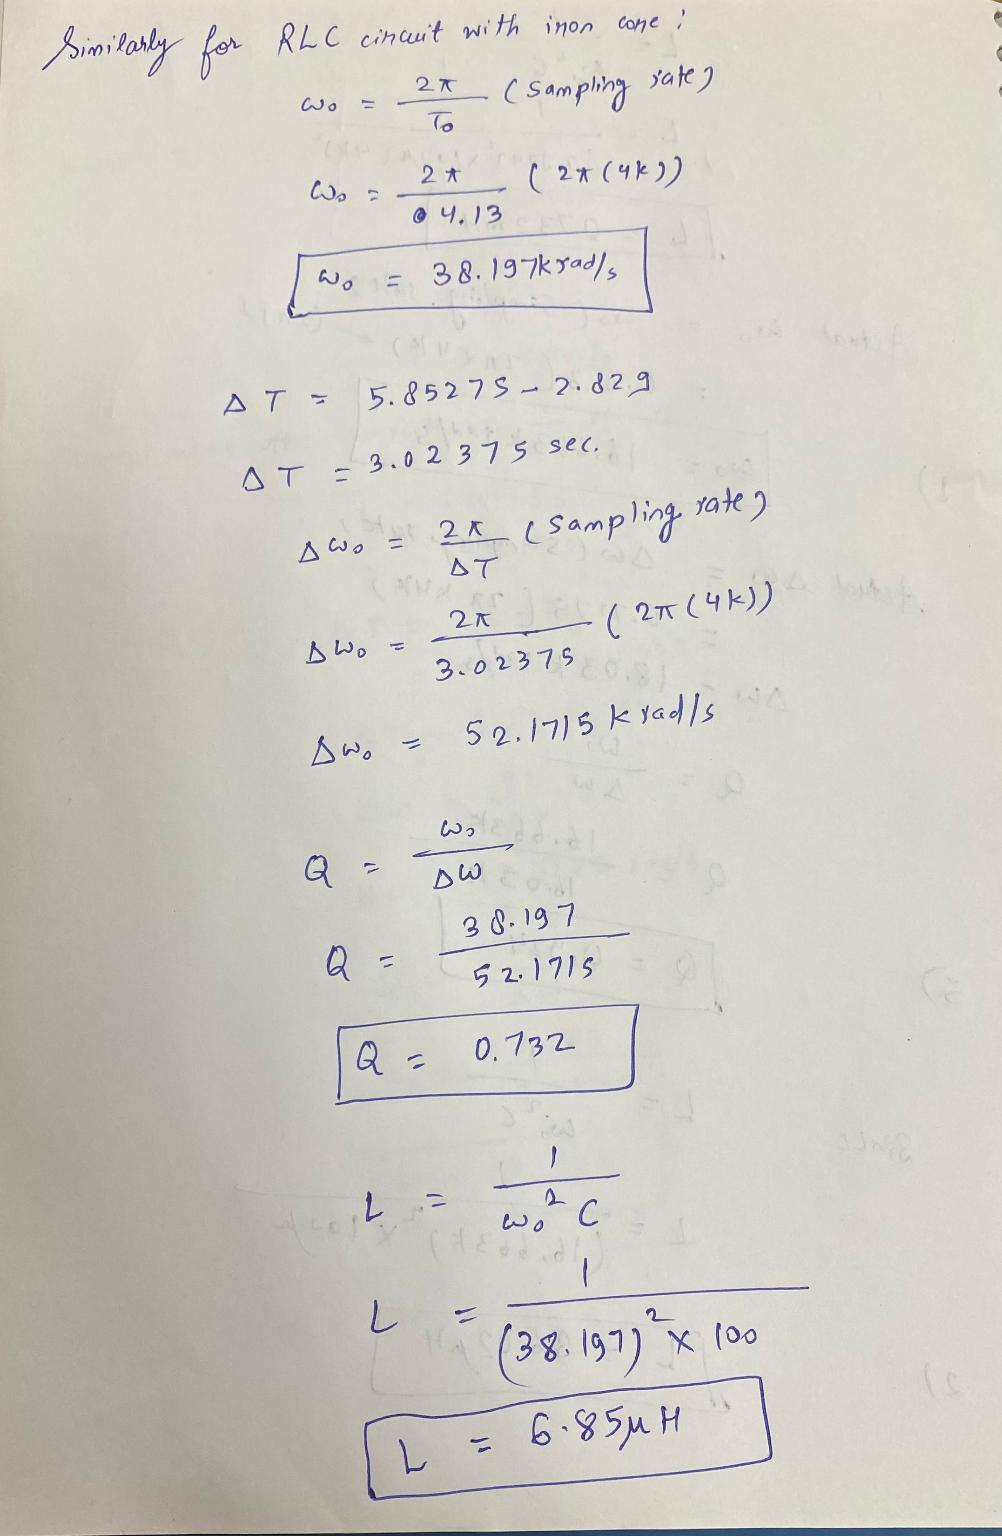 Similarly for RLC circuit with iron core :
ω₀ = 2π / T₀ (Sampling rate)
ω₀ = 2π / 4.13 (2π(4k))
ω₀ = 38.197k rad/s
ΔT = 5.85275 - 2.829
ΔT = 3.02375 sec.
Δω₀ = 2π / ΔT (Sampling rate)
Δω₀ = 2π / 3.02375 (2π(4k))
Δω₀ = 52.1715 k rad/s
Q = ω₀ / Δω
Q = 38.197 / 52.1715
Q = 0.732
L = 1 / ω₀² C
L = 1 / (38.197)² × 100
L = 6.85μH